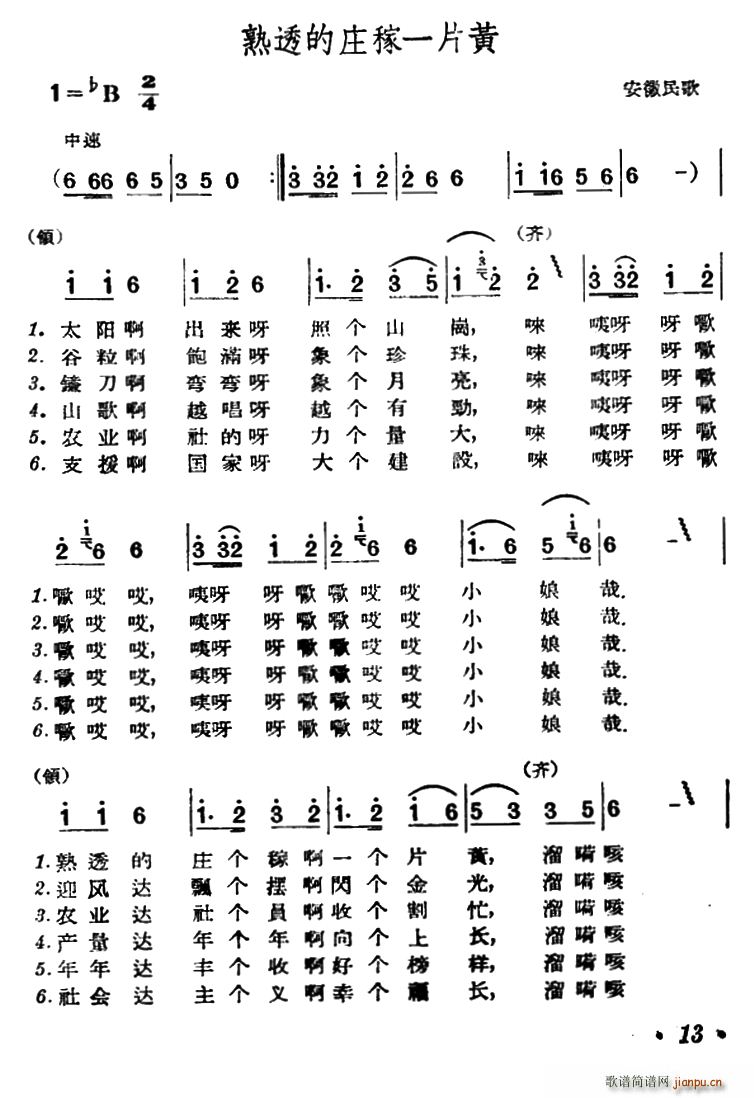 熟透的庄稼一片黄
1=♭B 2/4 安徽民歌
中速
(6 66 6 5 | 3 5 0 :‖ 3 32 1 2 | 2 6 6 | 1 16 5 6 | 6 –) |
(领) (齐)
1 1 6 | 1 2 6 | 1· 2 3 5 | 1 2 2 | 3 32 1 2 |
1. 太阳啊 出来呀 照个山岗, 唻 咦呀 呀噷
2. 谷粒啊 饱满呀 象个珍珠, 唻 咦呀 呀噷
3. 镰刀啊 弯弯呀 象个月亮, 唻 咦呀 呀噷
4. 山歌啊 越唱呀 越个有勁, 唻 咦呀 呀噷
5. 农业啊 社的呀 力个量大, 唻 咦呀 呀噷
6. 支援啊 国家呀 大个建設, 唻 咦呀 呀噷
2 6 6 | 3 32 1 2 | 2 6 6 | 1· 6 5 6 | 6 – |
1. 噷哎哎, 咦呀 呀噷噷哎哎 小 娘 哉.
2. 噷哎哎, 咦呀 呀噷噷哎哎 小 娘 哉.
3. 噷哎哎, 咦呀 呀噷噷哎哎 小 娘 哉.
4. 噷哎哎, 咦呀 呀噷噷哎哎 小 娘 哉.
5. 噷哎哎, 咦呀 呀噷噷哎哎 小 娘 哉.
6. 噷哎哎, 咦呀 呀噷噷哎哎 小 娘 哉.
(領) (齐)
1 1 6 | 1· 2 3 2 | 1· 2 1 6 | 5 3 3 5 | 6 – |
1. 熟透的 庄个稼啊一个片 黄, 溜嗬咳
2. 迎风达 飄个摆啊閃个金 光, 溜嗬咳
3. 农业达 社个員啊收个割 忙, 溜嗬咳
4. 产量达 年个年啊向个上 长, 溜嗬咳
5. 年年达 丰个收啊好个榜 样, 溜嗬咳
6. 社会达 主个义啊幸个 长, 溜嗬咳
• 13 •
歌谱简谱网
jianpu.cn